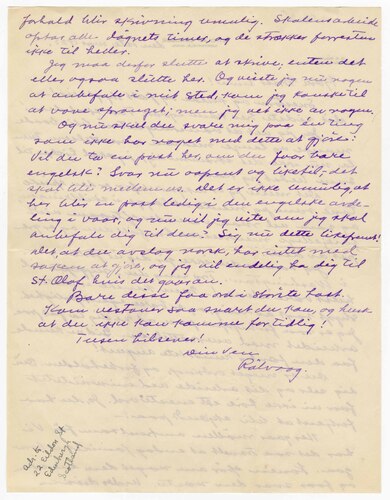 forhold blir skrivning umulig. Skolens arbeide
optar alle dagnets timer, og de strækker forresten
ikke til heller.
Jeg maa derfor slutte at skrive, enten det
eller ogsaa slutte her. Og visste jeg nu nogen
at anbefale i mit sted, kom jeg kanske til
at vove spranget; men jeg vet ikke av nogen.
Og nu skal du svare mig paa én ting
som ikke har noget med dette at gjøre:
Vil du ta en post her, om du faar bare
engelsk? Svar nu aapent og liketil – det
skal bli mellem os. Det er ikke umulig at
her blir en post ledig i den engelske avde-
ling i vaar, og nu vil jeg vite om jeg skal
anbefale dig til den? Sig nu dette likefrem!
Det at du avslog norsk, har intet med
saken at gjøre, og jeg vil endelig ha dig til
St. Olaf hvis det gaar an.
Bare disse faa ord i største hast.
Kom vestover saa snart du kan, og husk
at du ikke kan komme for tidlig!
Tusen hilsener!
Din Ven
Rølvaag
Ad. to
22 Eildon St
Edinburgh
Scotland